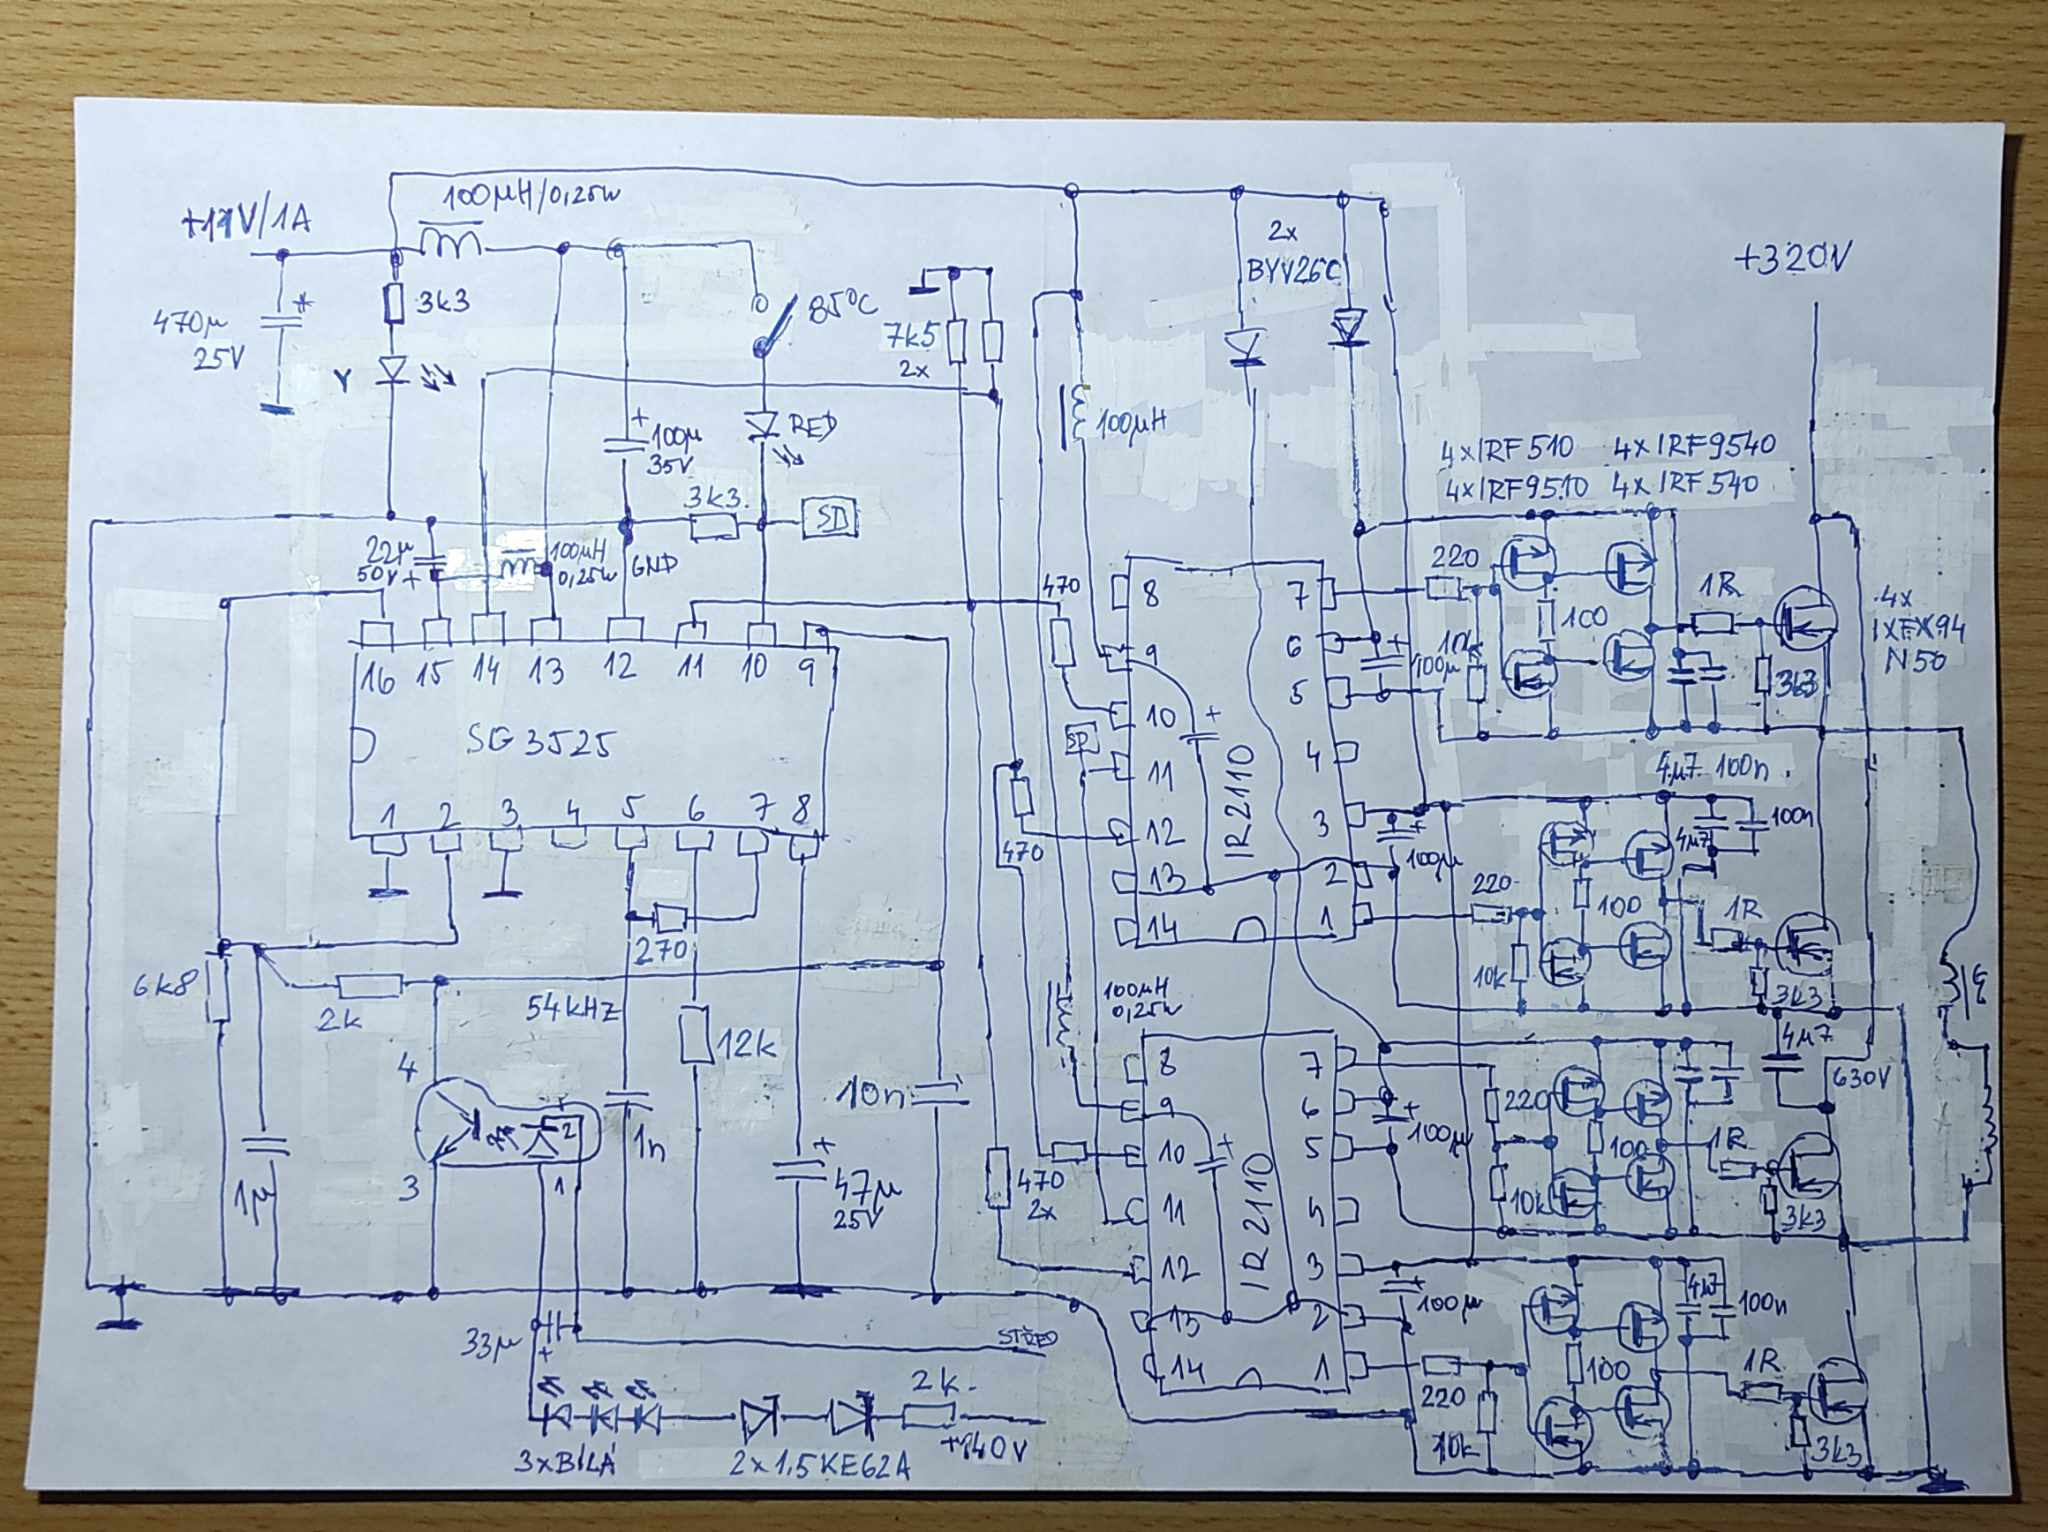 100μH/0,25W
+11V/1A
470μ
25V
*
3k3
Y
85°C
RED
+
100μ
35V
3k3
SD
GND
22μ
50V +
100μH
0,25W
7k5
2x
100μH
2x
BYV26C
+320V
4xIRF510 4xIRF9540
4xIRF9510 4xIRF540
4x
IXFX94
N50
16 15 14 13 12 11 10 9
SG3525
1 2 3 4 5 6 7 8
270
6k8
2k
54kHZ
12k
10n
1n
1μ
4
3
2
1
+
47μ
25V
33μ
+
STŘED
2k
+140V
3xBÍLÁ
2x1,5KE62A
470
SD
470
8 7
9 6
10 5
11 4
12 3
13 2
14 1
IR2110
+
+
100μ
+
100μ
220
10k
100
1R
3k3
4μ7 100n
220
10k
100
1R
3k3
4μ7
100n
4μ7
630V
100μH
0,25W
470
2x
8 7
9 6
10 5
11 4
12 3
13 2
14 1
IR2110
+
+
100μ
+
100μ
220
10k
100
1R
3k3
220
10k
100
1R
3k3
4μ7
100n